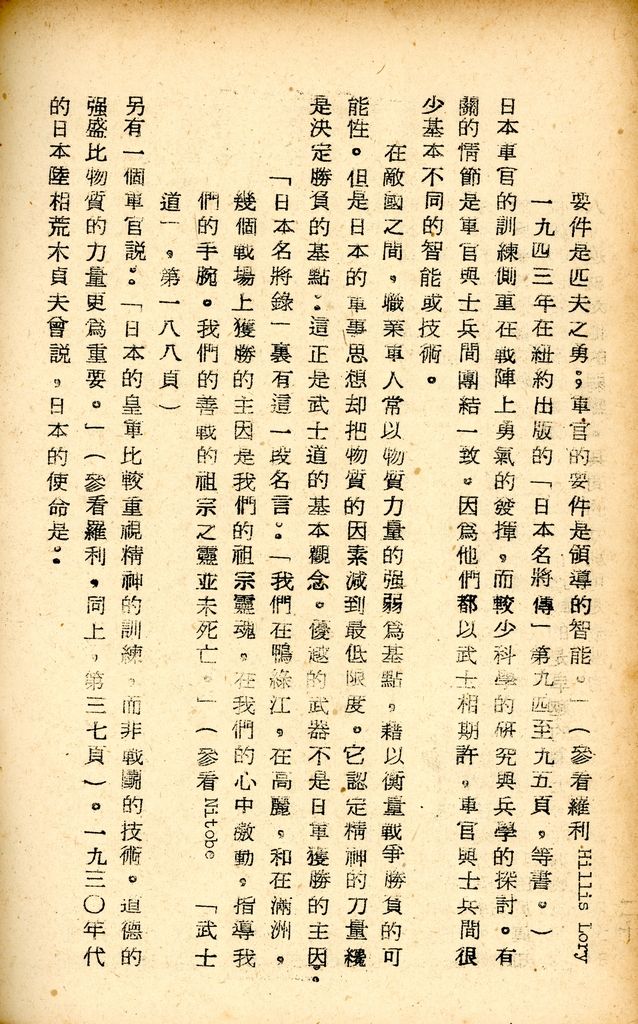 要件是匹夫之勇；軍官的要件是領導的智能。」（參看羅利 Hillis Lory
一九四三年在紐約出版的「日本名將傳」第九四至九五頁，等書。）
日本軍官的訓練側重在戰陣上勇氣的發揮，而較少科學的研究與兵學的探討。有
關的情節是軍官與士兵間團結一致。因爲他們都以武士相期許，軍官與士兵間很
少基本不同的智能或技術。
在敵國之間，職業軍人常以物質力量的强弱爲基點，藉以衡量戰爭勝負的可
能性。但是日本的軍事思想却把物質的因素減到最低限度。它認定精神的力量纔
是決定勝負的基點：這正是武士道的基本觀念。優越的武器不是日軍獲勝的主因。
「日本名將錄」裏有這一段名言：「我們在鴨綠江，在高麗，和在滿洲，
幾個戰場上獲勝的主因是我們的祖宗靈魂，在我們的心中激動，指導我
們的手腕。我們的善戰的祖宗之靈並未死亡。」（參看 Nitobe 「武士
道」，第一八八頁）
另有一個軍官説：「日本的皇軍比較重視精神的訓練，而非戰鬭的技術。道德的
强盛比物質的力量更爲重要。」（參看羅利，同上，第三七頁）。一九三〇年代
的日本陸相荒木貞夫曾説，日本的使命是：